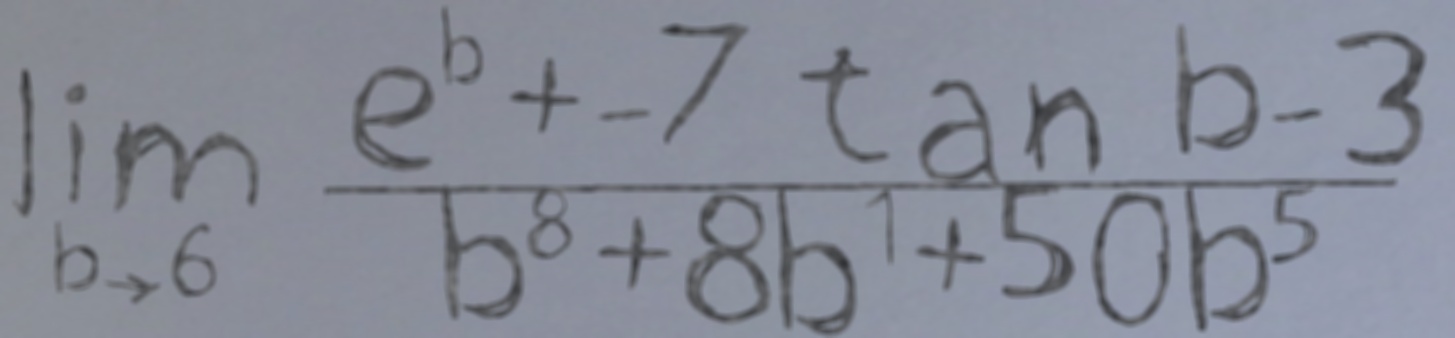 \lim_{b \to 6} \frac{e^b + -7 \tan b - 3}{b^8 + 8b^1 + 50b^5}